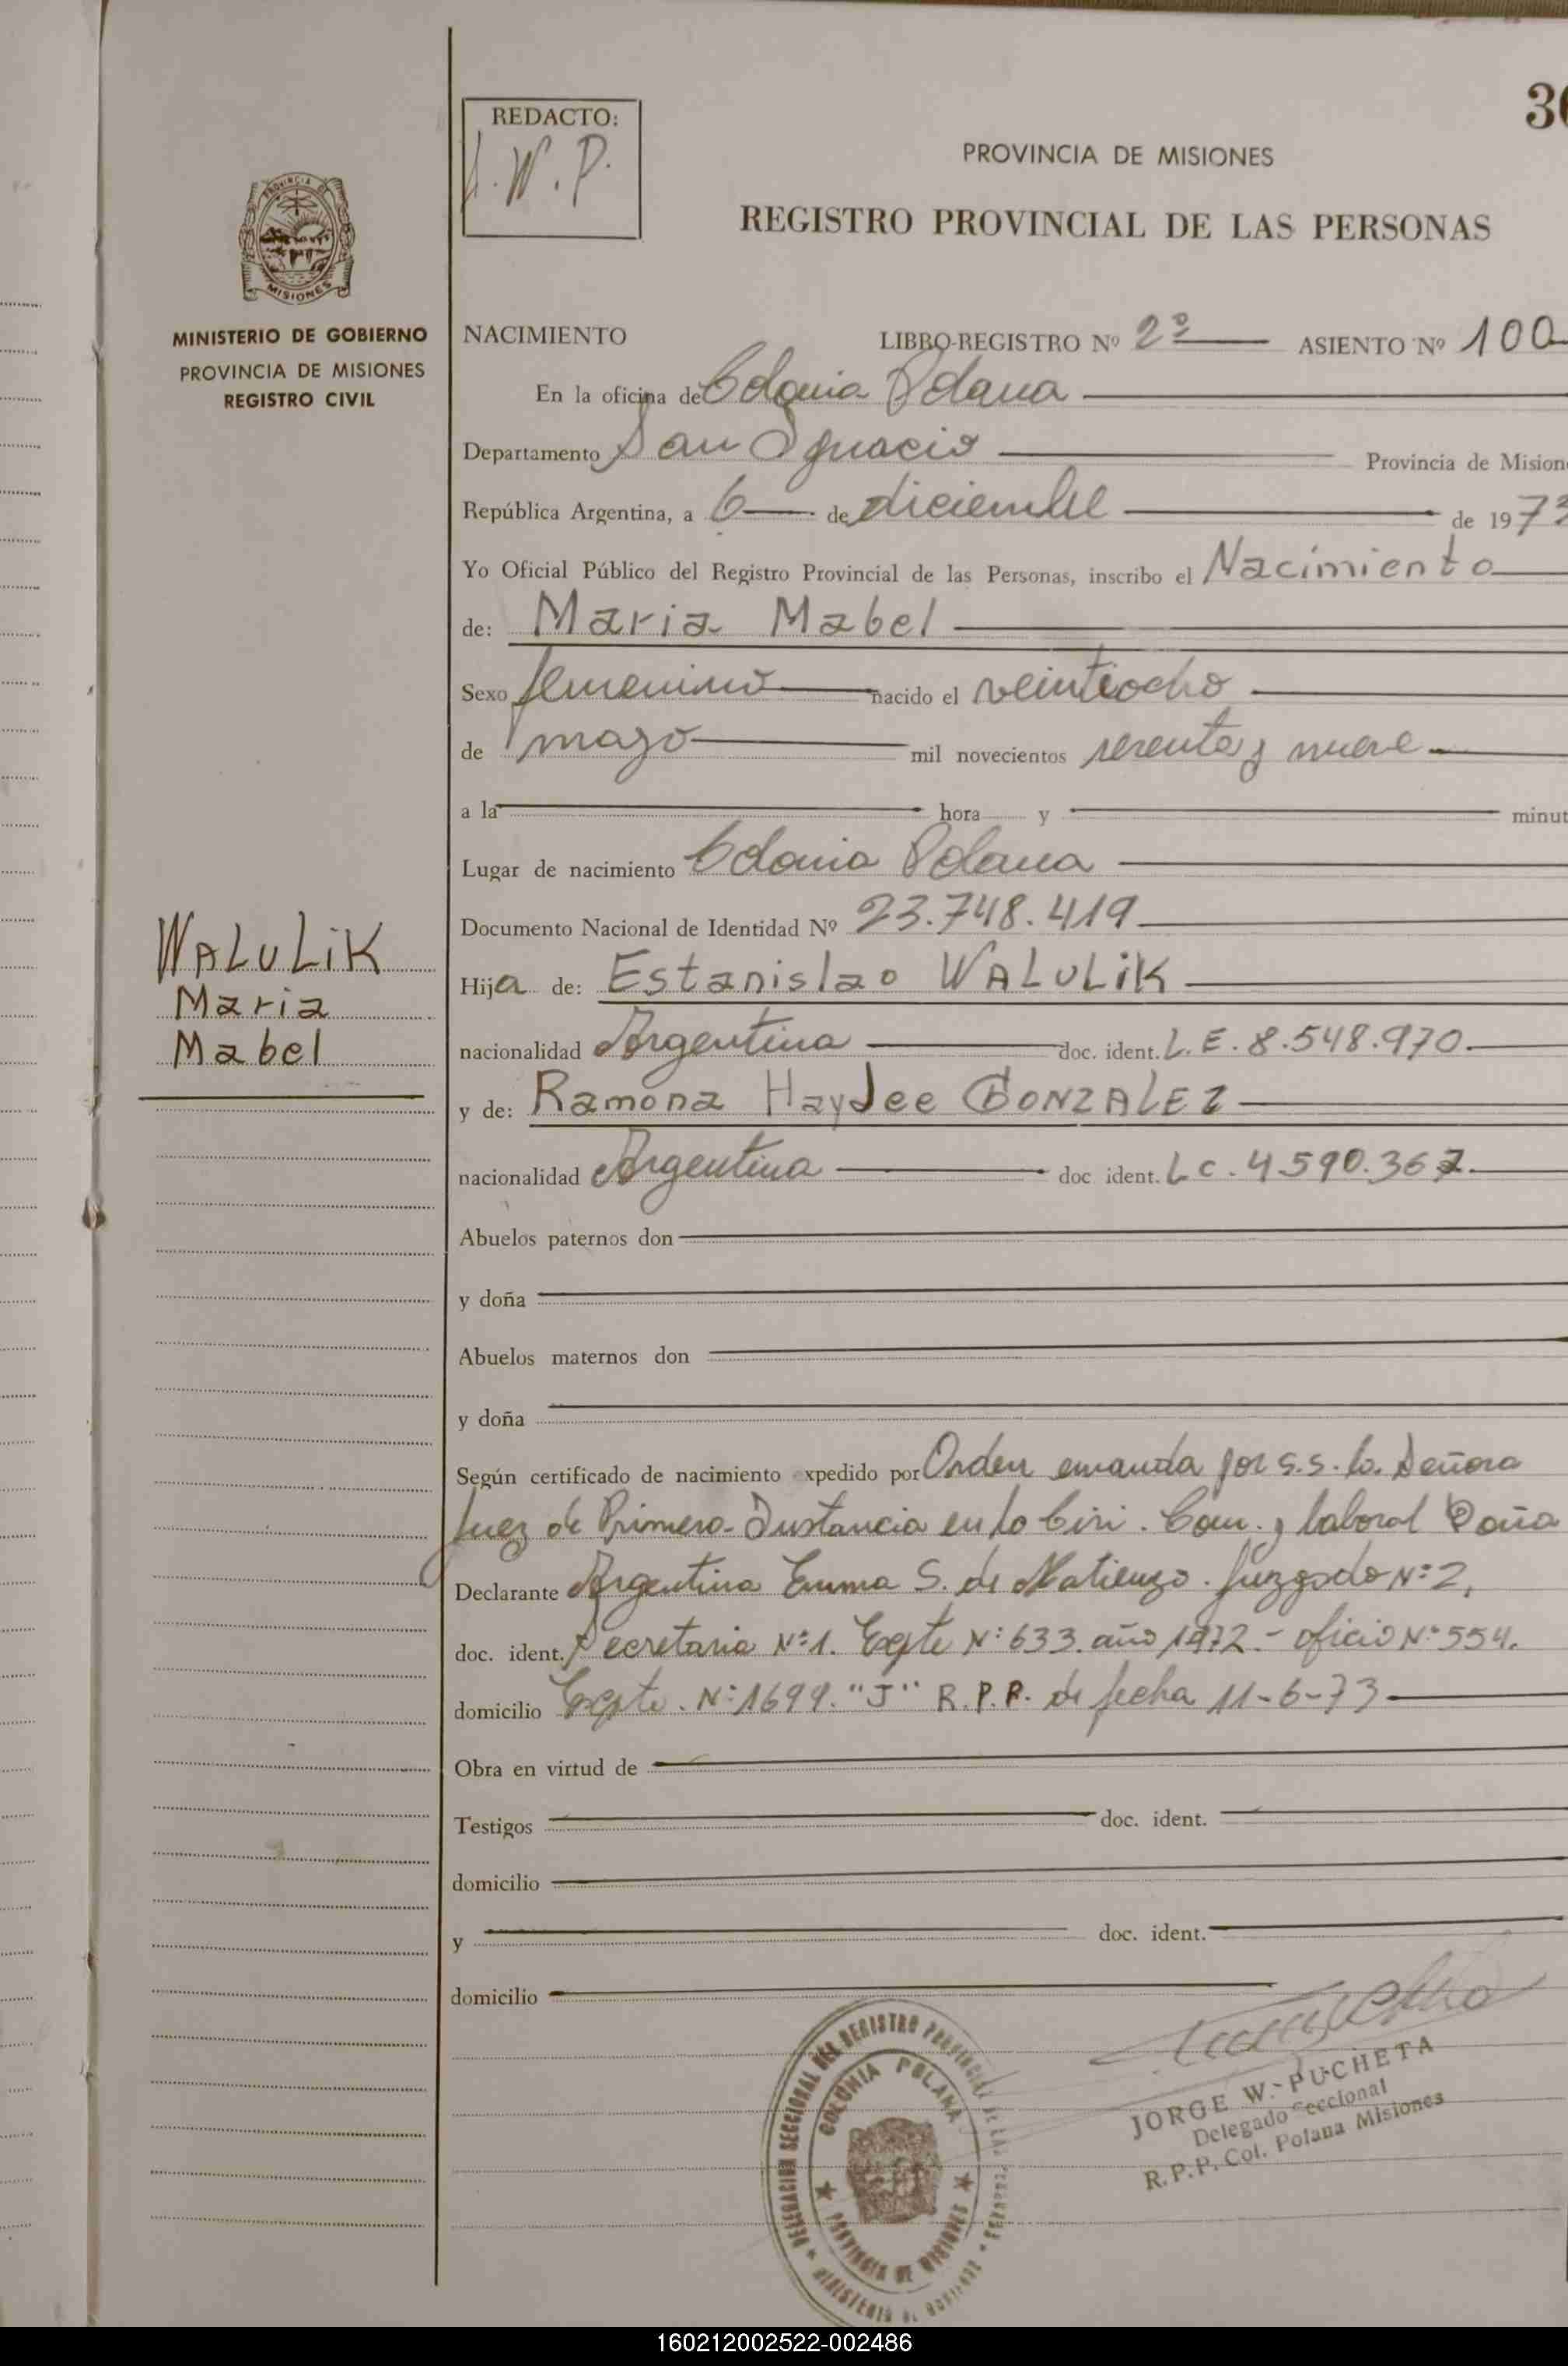 30
REDACTO:
J.W.P.
PROVINCIA DE MISIONES
REGISTRO PROVINCIAL DE LAS PERSONAS
PROVINCIA DE
MISIONES
MINISTERIO DE GOBIERNO
PROVINCIA DE MISIONES
REGISTRO CIVIL
NACIMIENTO LIBRO-REGISTRO Nº 2º ASIENTO Nº 100
En la oficina de Colonia Polana
Departamento San Ignacio Provincia de Mision
República Argentina, a 6 de diciembre de 1973
Yo Oficial Público del Registro Provincial de las Personas, inscribo el Nacimiento
de: Maria Mabel
Sexo femenino nacido el veintiocho
de mayo mil novecientos sesenta y nueve
a la hora y minut
Lugar de nacimiento Colonia Polana
Documento Nacional de Identidad Nº 23.748.419
WALULIK
Maria
Mabel
Hija de: Estanislao WALULIK
nacionalidad Argentina doc. ident. L.E. 8.548.970.
y de: Ramona Haydee GONZALEZ
nacionalidad Argentina doc ident. L C. 4.590.367.
Abuelos paternos don
y doña
Abuelos maternos don
y doña
Según certificado de nacimiento expedido por Orden emanda por S.S. la Señora
Juez de Primera Instancia en lo Civi. Com. y laboral Doña
Declarante Argentina Emma S. de Matienzo. Juzgado Nº 2,
doc. ident. Secretaria Nº 1. Expte Nº 633. año 1972.- oficio Nº 554.
domicilio Expte. Nº 1699. "J" R.P.P. de fecha 11-6-73
Obra en virtud de
Testigos doc. ident.
domicilio
y doc. ident.
domicilio
DELEGACION SECCIONAL DEL REGISTRO PROVINCIAL DE LAS PERSONAS
COLONIA POLANA
PROVINCIA DE MISIONES
JORGE W. PUCHETA
Delegado Seccional
R.P.P. Col. Polana Misiones
160212002522-002486